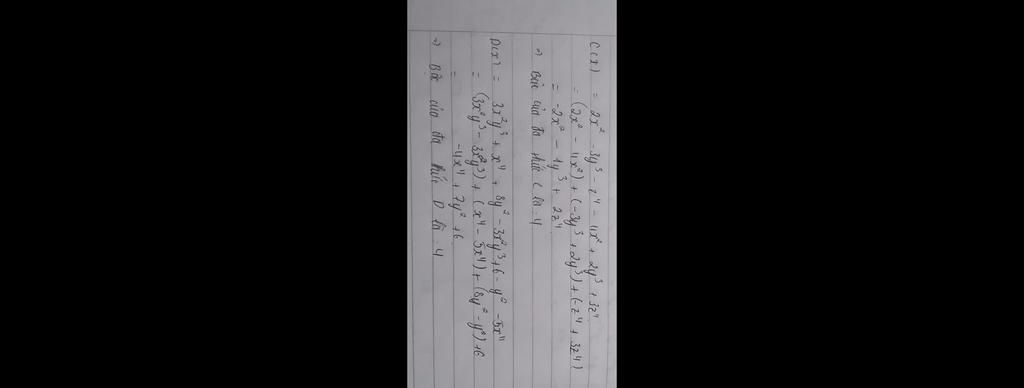 C(x) = 2x² - 3y³ - z⁴ - 4x² + 2y³ + 3z⁴
= (2x² - 4x²) + (-3y³ + 2y³) + (-z⁴ + 3z⁴)
= -2x² - 1y³ + 2z⁴
=> Bậc của đa thức C là: 4
D(x) = 3x²y³ + x⁴ + 8y² - 3x²y³ + 6 - y² - 5x⁴
= (3x²y³ - 3x²y³) + (x⁴ - 5x⁴) + (8y² - y²) + 6
= -4x⁴ + 7y² + 6
=> Bậc của đa thức D là: 4